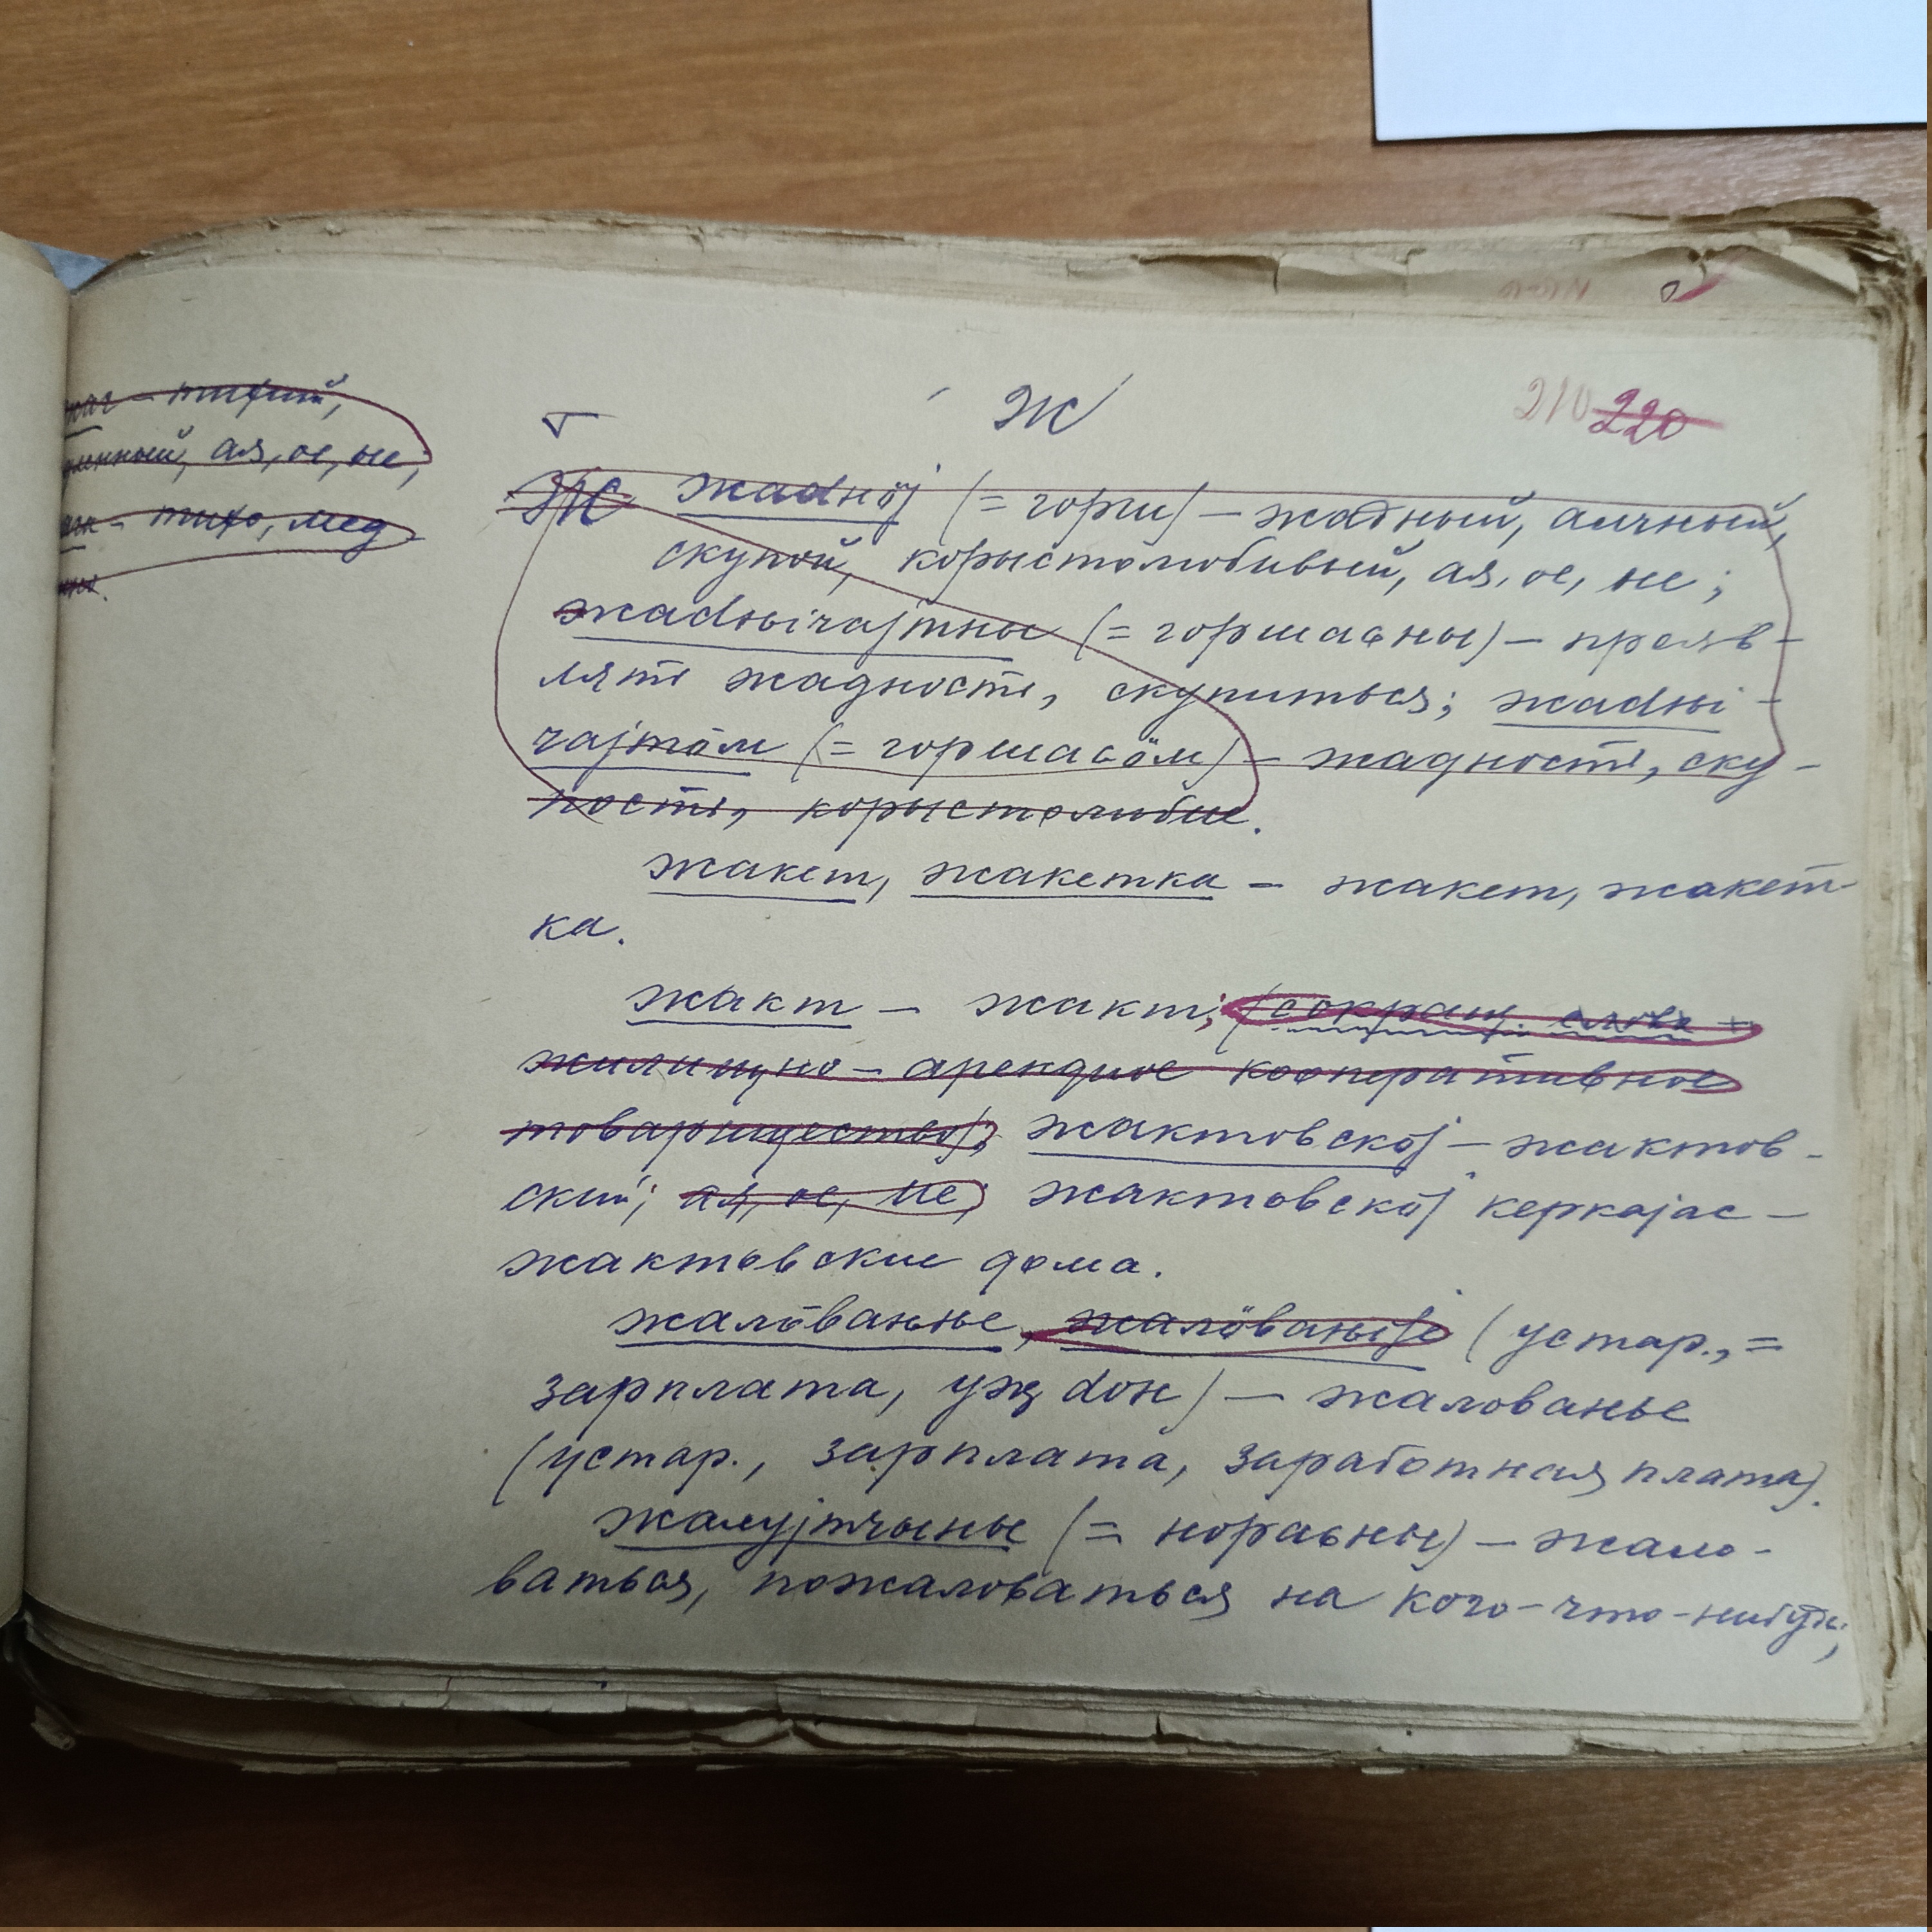 тихий,
ая, ое, ые,
тихо, мед
Ж
210 220
Ж жаdнöj (= горш) – жадный, алчный,
скупой, корыстолюбивый, ая, ое, ые;
жаdњічајтны (= горшаԍны) – прояв-
лять жадность, скупиться; жаdњі-
чајтöм (= горшаԍöм) – жадность, ску-
пость, корыстолюбие.
жакет, жакетка – жакет, жакет-
ка.
жакт – жакт; (сокращ. слова –
жилищно – арендное кооперативное
товарищество); жактовскöј – жактов-
ский; ая, ое, ие; жактовскöј керкајас –
жактовские дома.
жалöваньње, жалöваньјо (устар., =
зарплата, уҗ dон) – жалованье
(устар., зарплата, заработная плата).
жалујтчыны (= нораԍны) – жало-
ваться, пожаловаться на кого-что-нибудь;